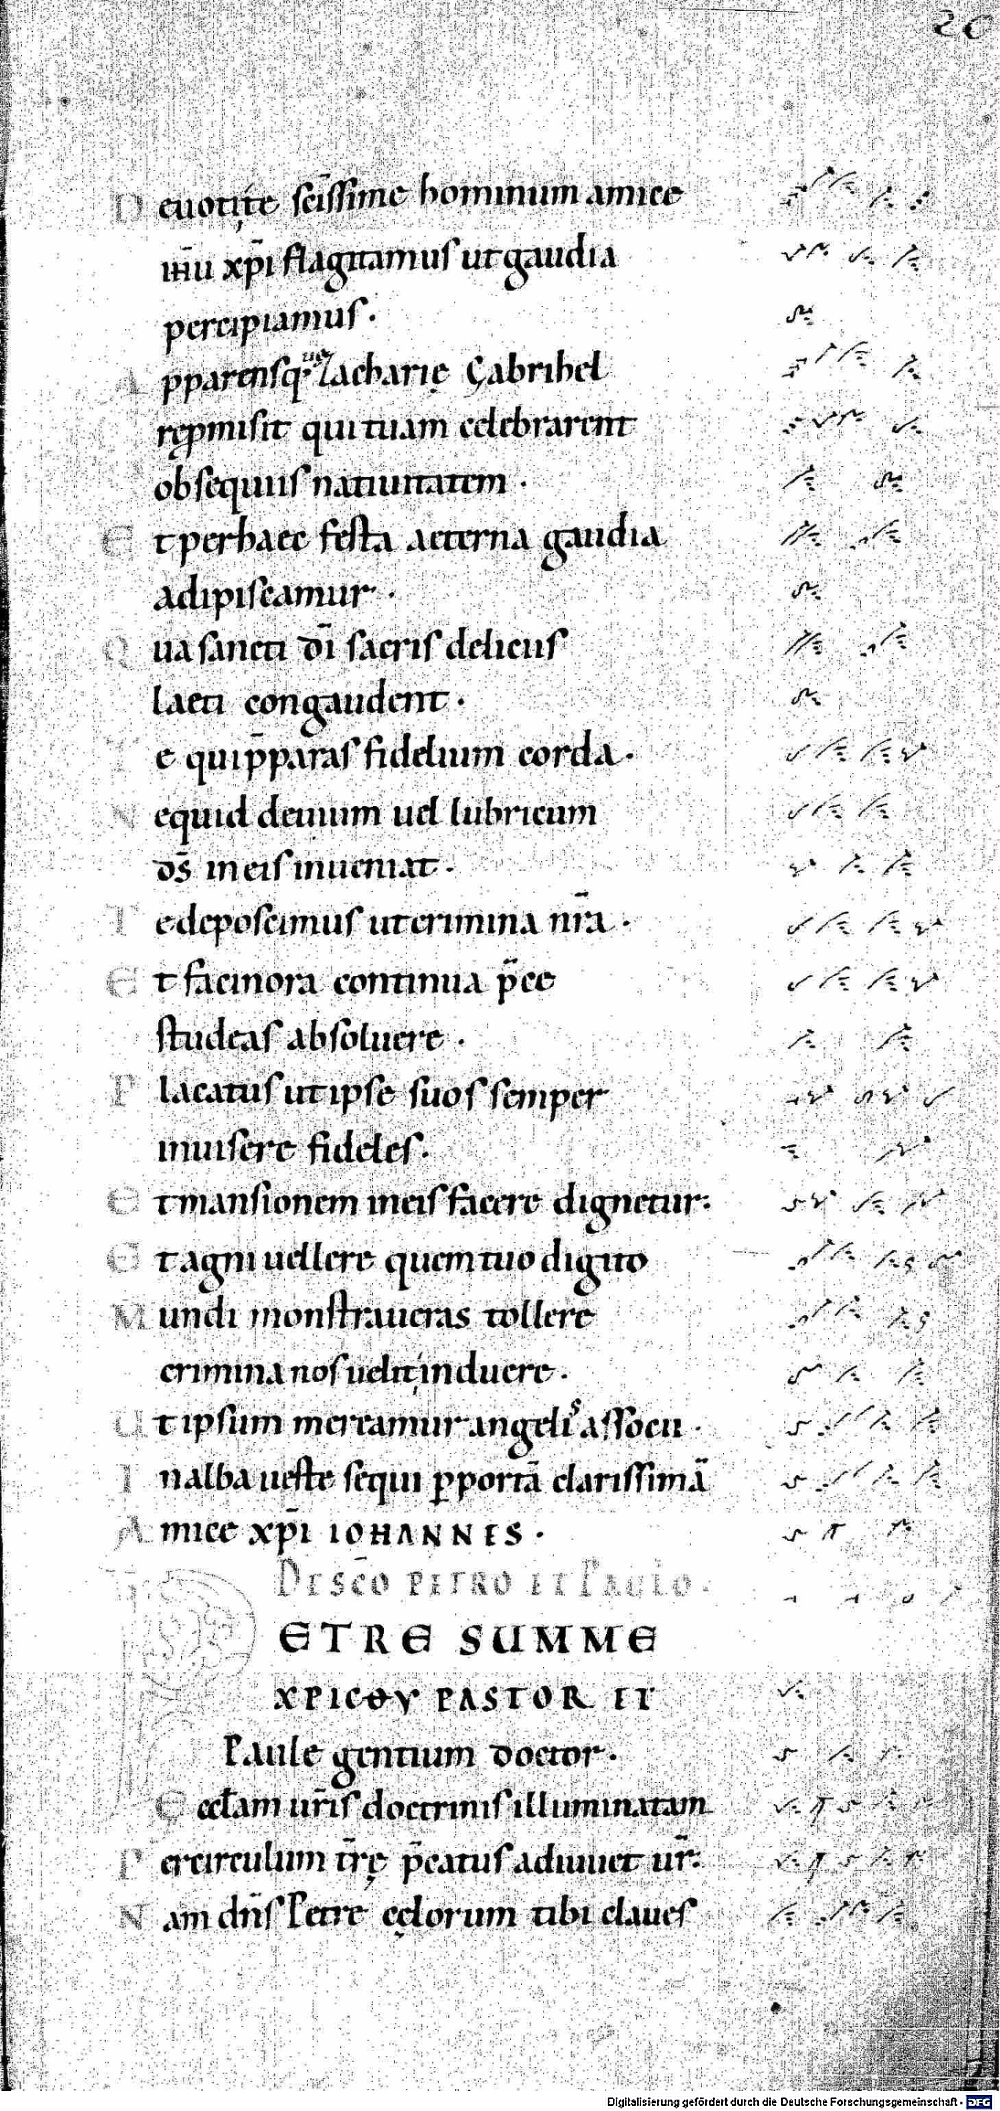 26
Deuoti te sc̄issime hominum amice
ih̄u xp̄i flagitamus ut gaudia
percipiamus.
Apparensq; Zacharię Gabrihel
repmisit qui tuam celebrarent
obsequiis natiuitatem.
Et per haec festa aeterna gaudia
adipiscamur.
Qua sancti dī sacris deliciis
laeti congaudent.
Te qui p̄paras fidelium corda.
Ne quid deuium uel lubricum
ds̄ in eis inueniat.
Te deposcimus ut crimina nr̄a.
Et facinora continua p̄ce
studeas absoluere.
Placatus ut ipse suos semper
inuisere fideles.
Et mansionem in eis facere dignetur.
Et agni uellere quem tuo digito
Mundi monstraueras tollere
crimina nos uelit induere.
Ut ipsum mereamur angelis associi.
In alba ueste sequi p portā clarissimā
Amice xp̄i IOHANNES.
DE SC̄O PETRO ET PAULO.
PETRE SUMME
XPICΘY PASTOR ET
Paule gentium doctor.
Eccl̄am ur̄is doctrinis illuminatam
Per circulum tr̄rę p̄catus adiuuet ur̄.
Nam dn̄s Petre cęlorum tibi claues
Digitalisierung gefördert durch die Deutsche Forschungsgemeinschaft - DFG